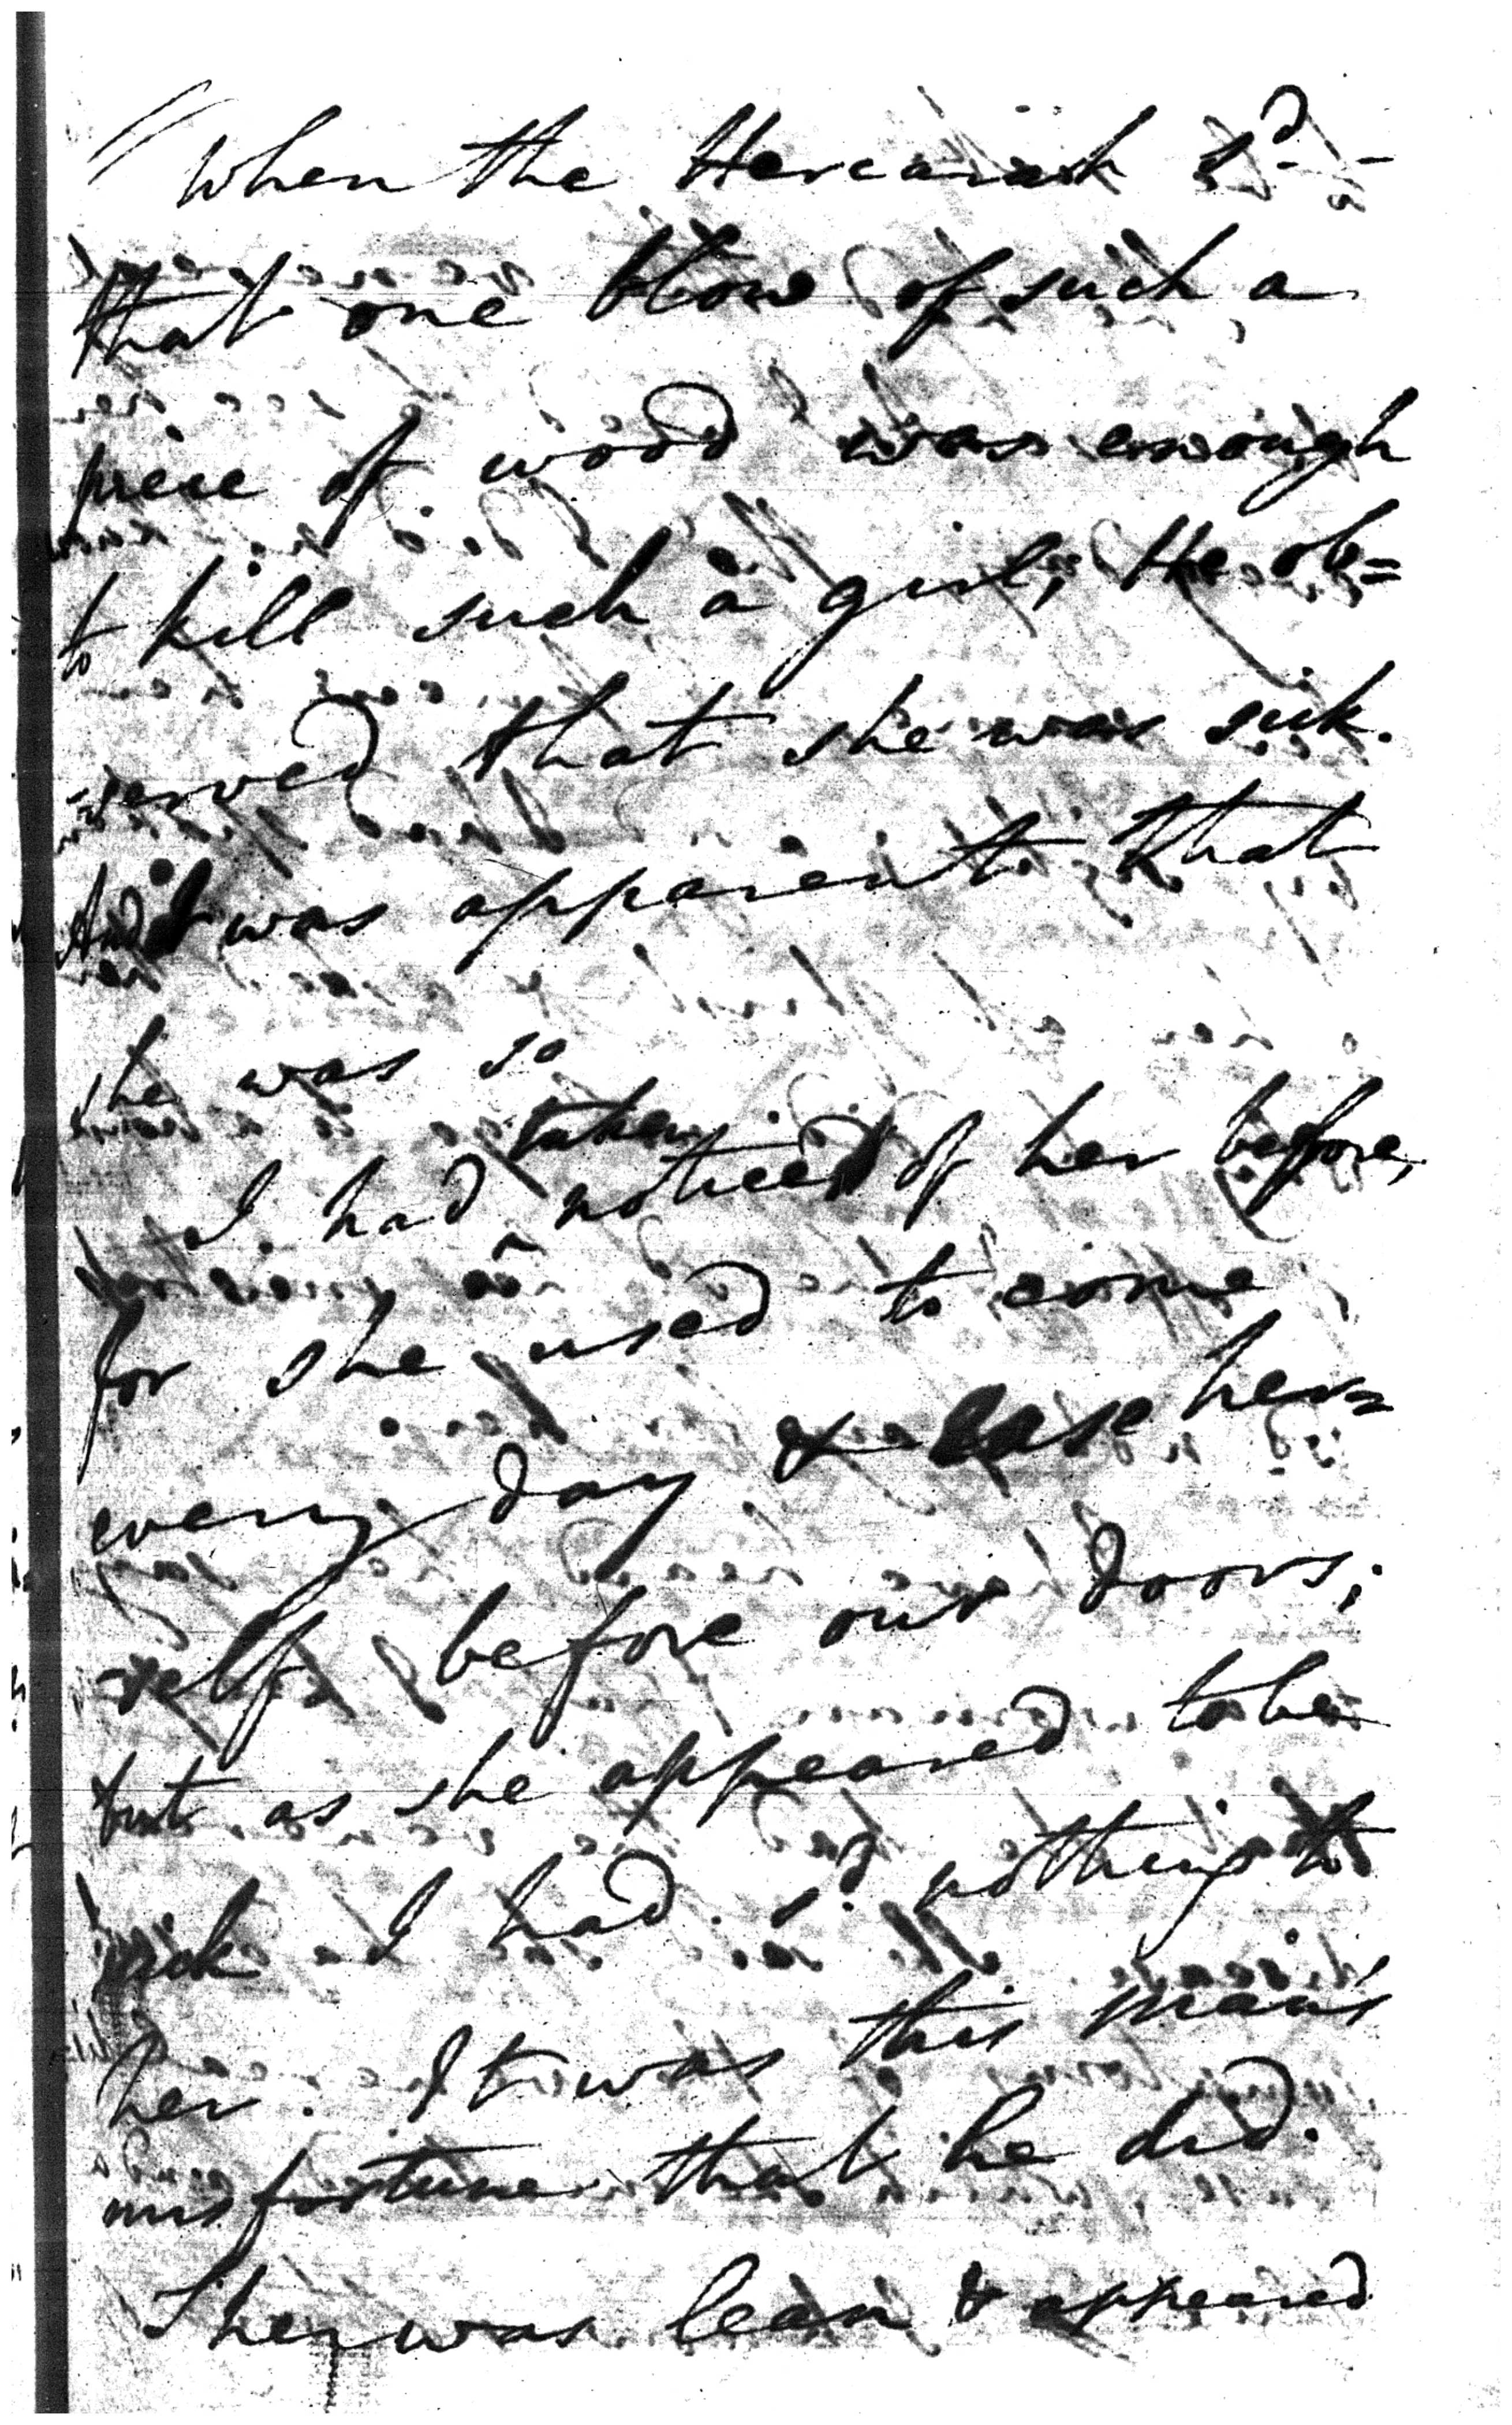 "When the Hercarrah sd. -
that one blow of such a
piece of wood was enough
to kill such a girl, He ob=
=served that she was sick.
And it was apparent that
she was so
taken
I had noticed of her before,
for she used to come
every day & ease her=
=self before our doors;
but as she appeared to be
sick I had sd. nothing to
her. It was this man's
misfortune that he did.
She was lean & appeared